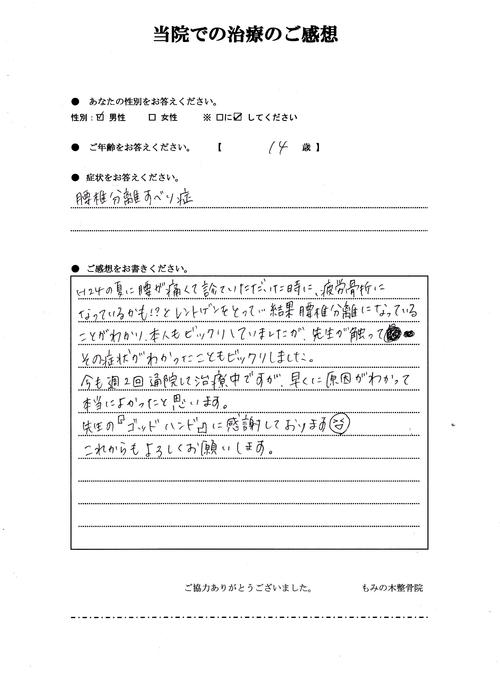 当院での治療のご感想
● あなたの性別をお答えください。
性別：☑ 男性 □ 女性 ※ □に☑ してください
● ご年齢をお答えください。 【 14 歳 】
● 症状をお答えください。
腰椎分離すべり症
● ご感想をお書きください。
H24の夏に腰が痛くて診ていただいた時に、疲労骨折に
なっているかも!?とレントゲンをとって…結果腰椎分離になっている
ことがわかり、本人もビックリしていましたが、先生が触って
その症状がわかったこともビックリしました。
今も週2回通院して治療中ですが、早くに原因がわかって
本当によかったと思います。
先生の『ゴッドハンド』に感謝しております
これからもよろしくお願いします。
ご協力ありがとうございました。 もみの木整骨院